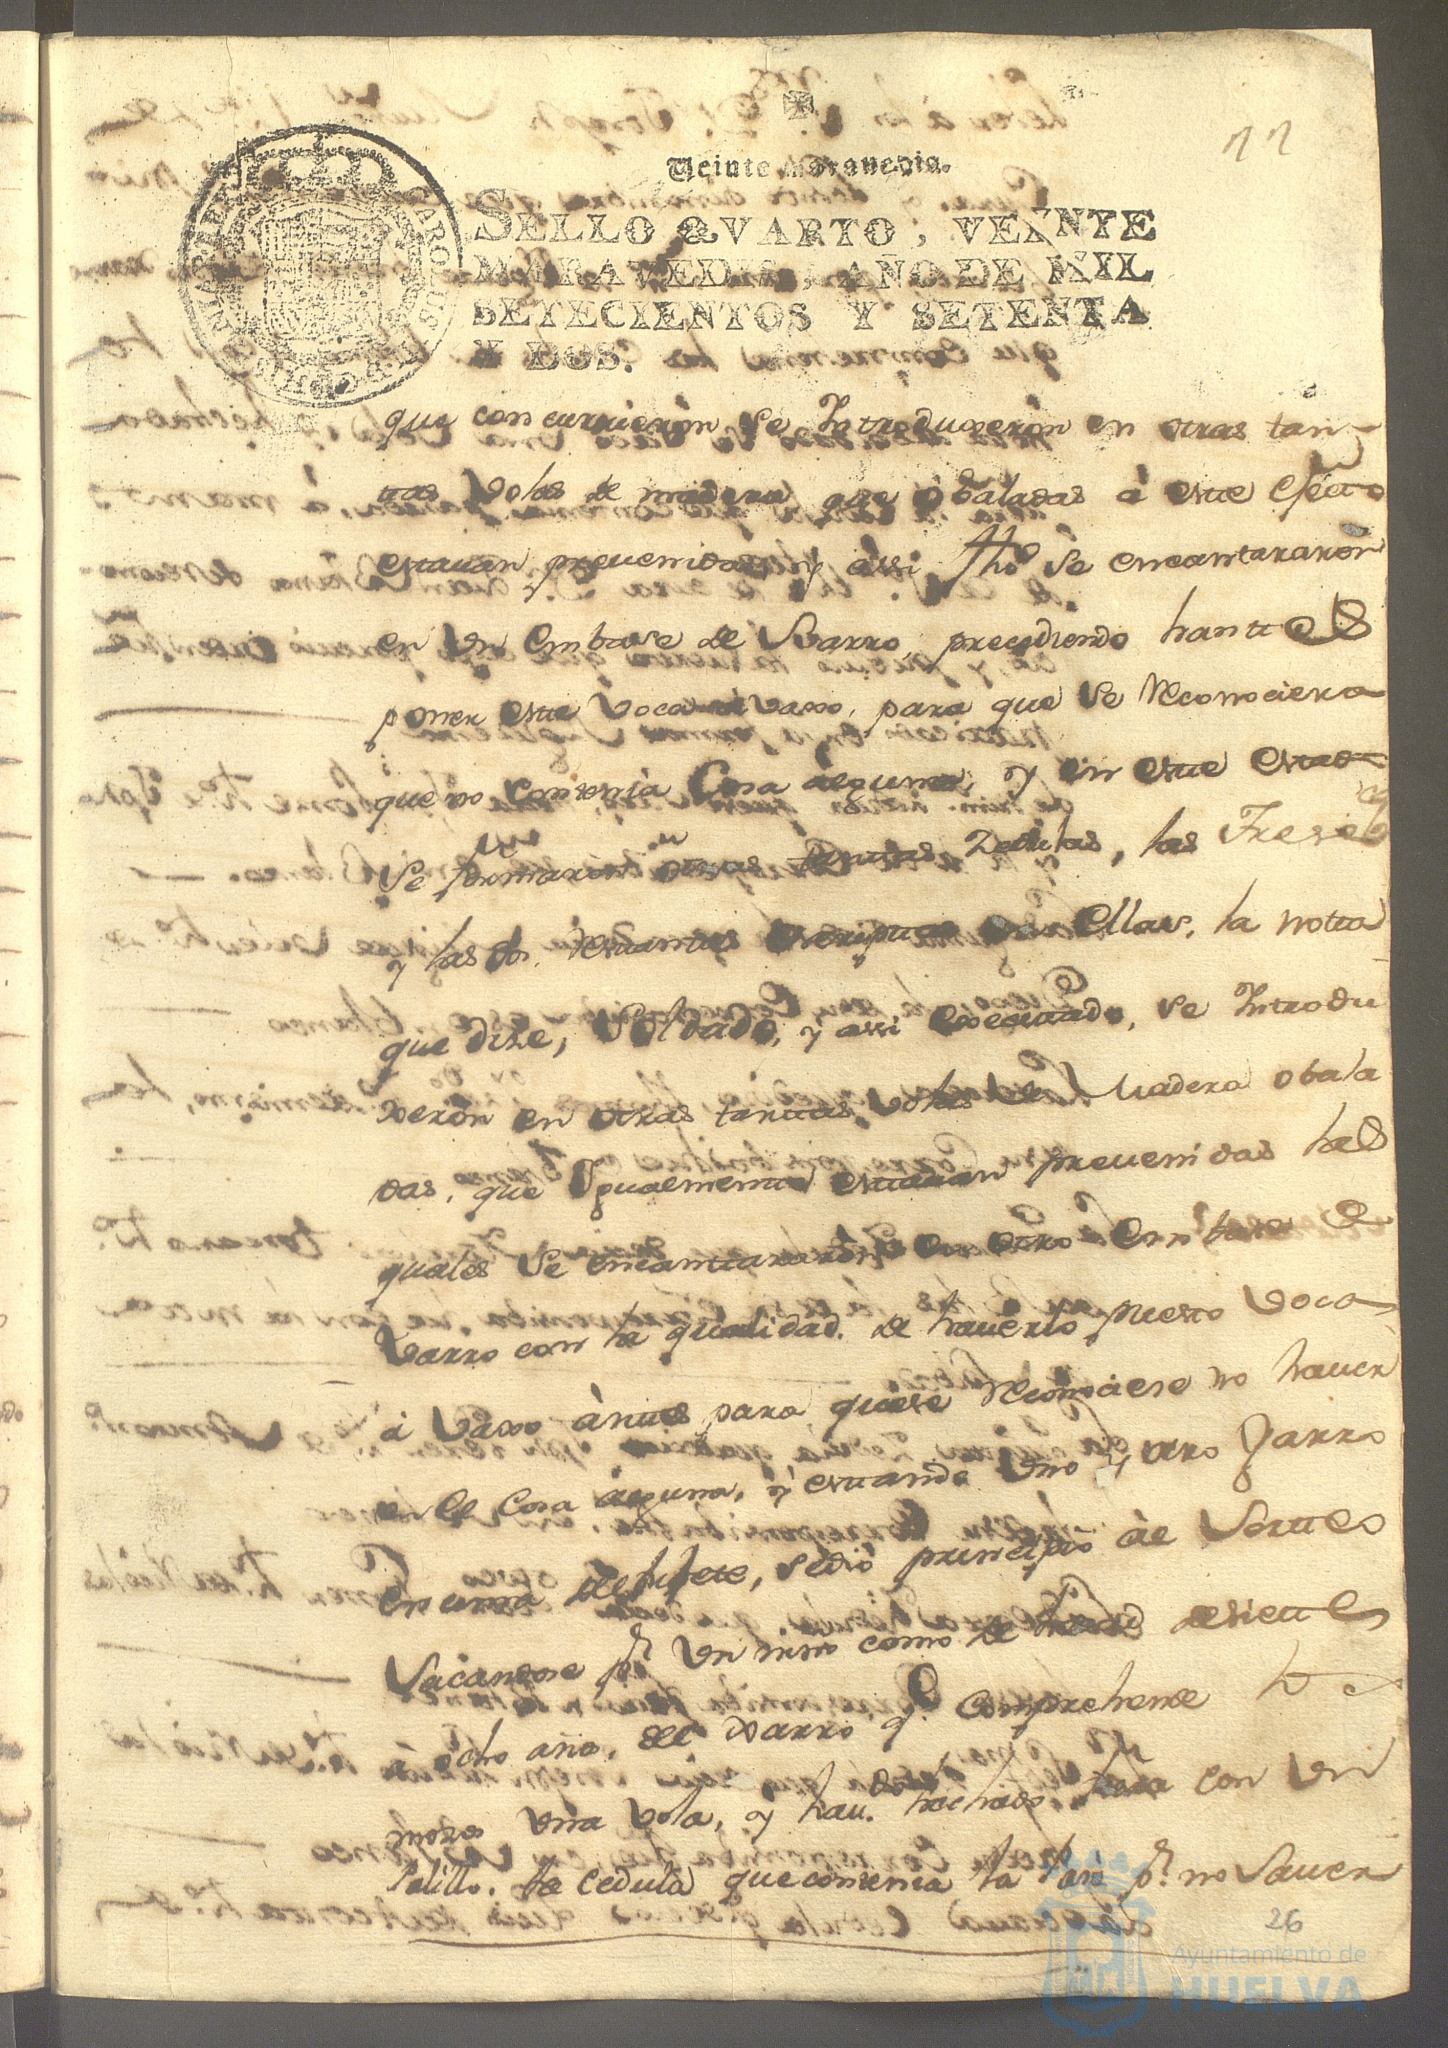 Veinte maravedis.
SELLO QVARTO, VEINTE
MARAVEDIS, AÑO DE MIL
SETECIENTOS Y SETENTA
Y DOS.
que concurrieron se Introduxeron en otras tan-
tas Volas de madera que obaladas â este efecto
estavan prevenidas, y assi fho se encantararon
en Un Embase de Barro, precediendo hante
poner este Voca avaxo, para que se reconociera
que no contenia Cosa alguna, y en este estado
se formaron otras tantas Zedulas, las Trese
y las restantes en ellas, la notta
que dize, Soldado, y assi executado, se Introdu
xeron en otras tantas Volas de Madera obala
das, que Igualmente estavan prevenidas las
quales se encantararon en otro Embase de
Varro con la qualidad de haverlo puesto Voca
â Vaxo ântes para que se reconociese no haver
en el Cosa alguna, y estando Uno y otro Jarro
en una bufete, se dio principio âl Sorteo
Sacandose pr Un nino como de hedad de siete
â ocho años, del Xarro q. Comprehende
mozos Una Vola, y havdo hechado fuera con Un
Palillo, la Cedula que contenia la leiô pr no Saver
26
Ayuntamiento de
HUELVA